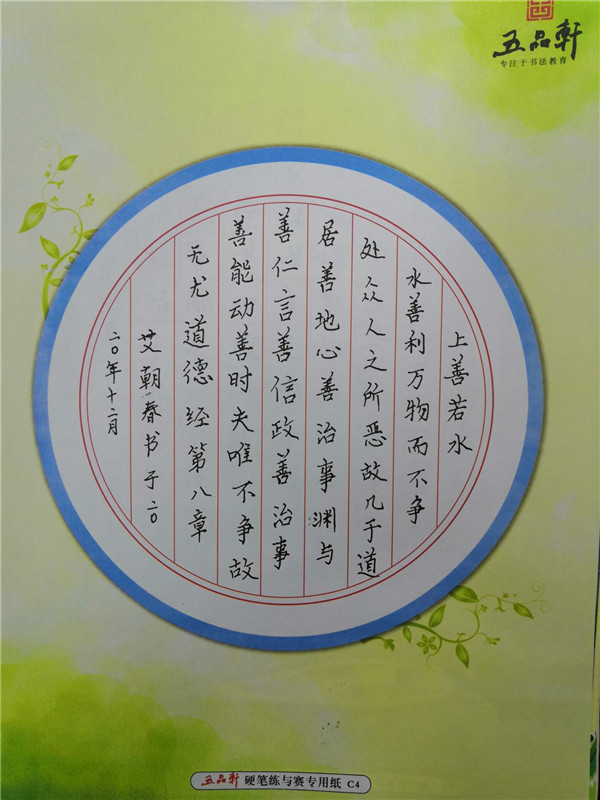 五品軒
专注于书法教育
上善若水
水善利万物而不争
处众人之所恶故几于道
居善地心善治事渊与
善仁言善信政善治事
善能动善时夫唯不争故
无尤道德经第八章
艾朝春书于二〇
二〇年十二月
五品軒 硬笔练与赛专用纸 C4